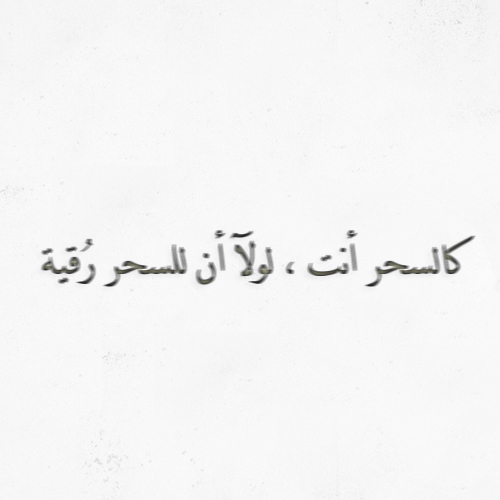 كالسحر أنت ، لولآ أن للسحر رُقية